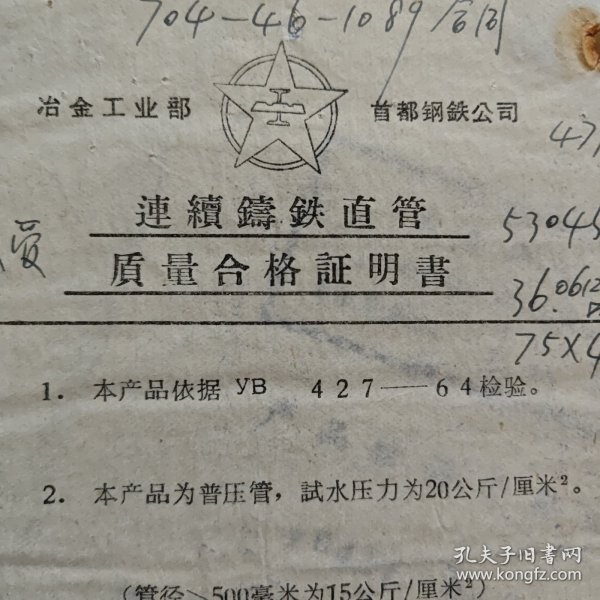 704-46-1089合同
冶金工业部 首都钢鉄公司
47
連續鑄鉄直管
53045
愛
質量合格証明書
36.0612
75X4
1. 本产品依据 УВ 427——64检验。
2. 本产品为普压管，試水压力为20公斤/厘米²。
(管径>500毫米为15公斤/厘米²)
孔夫子旧书网
www.kongfz.com